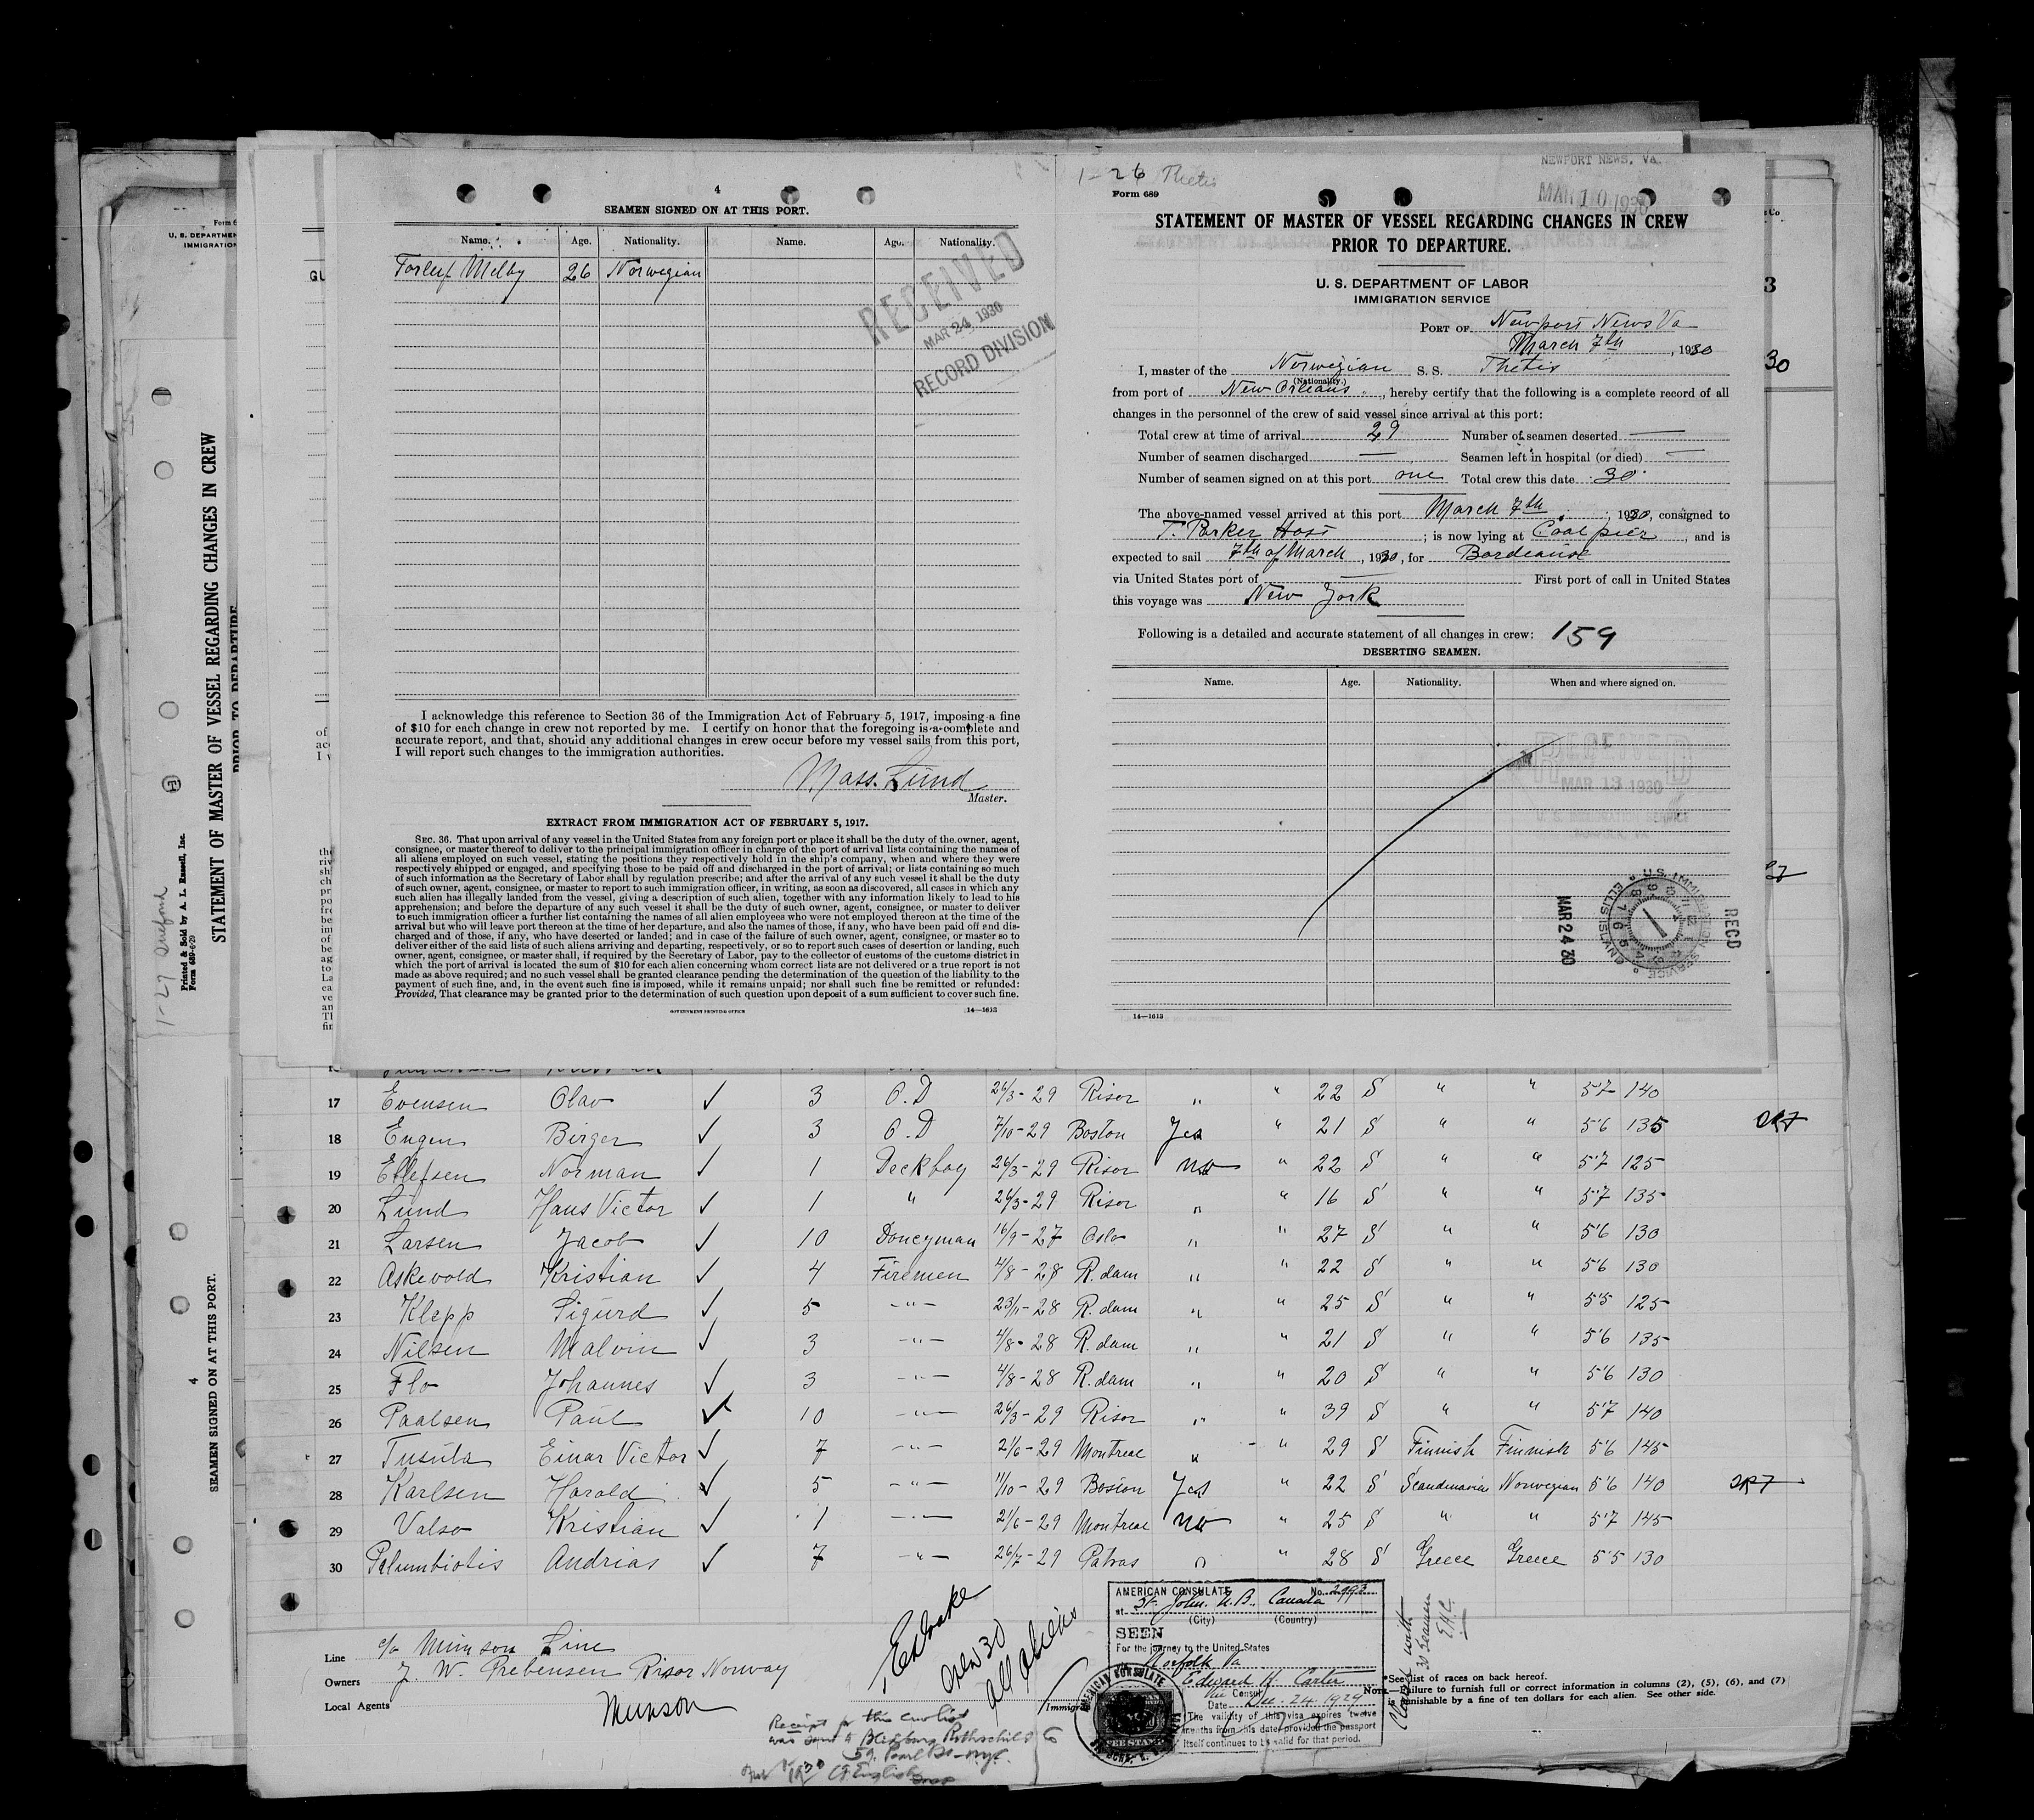 4
SEAMEN SIGNED ON AT THIS PORT.
Name. Age. Nationality. Name. Age. Nationality.
Torleif Melby 26 Norwegian
RECEIVED
MAR 24 1930
RECORD DIVISION
I acknowledge this reference to Section 36 of the Immigration Act of February 5, 1917, imposing a fine
of $10 for each change in crew not reported by me. I certify on honor that the foregoing is a complete and
accurate report, and that, should any additional changes in crew occur before my vessel sails from this port,
I will report such changes to the immigration authorities.
Mass. Lund
Master.
EXTRACT FROM IMMIGRATION ACT OF FEBRUARY 5, 1917.
SEC. 36. That upon arrival of any vessel in the United States from any foreign port or place it shall be the duty of the owner, agent,
consignee, or master thereof to deliver to the principal immigration officer in charge of the port of arrival lists containing the names of
all aliens employed on such vessel, stating the positions they respectively hold in the ship's company, when and where they were
respectively shipped or engaged, and specifying those to be paid off and discharged in the port of arrival; or lists containing so much
of such information as the Secretary of Labor shall by regulation prescribe; and after the arrival of any such vessel it shall be the duty
of such owner, agent, consignee, or master to report to such immigration officer, in writing, as soon as discovered, all cases in which any
such alien has illegally landed from the vessel, giving a description of such alien, together with any information likely to lead to his
apprehension; and before the departure of any such vessel it shall be the duty of such owner, agent, consignee, or master to deliver
to such immigration officer a further list containing the names of all alien employees who were not employed thereon at the time of the
arrival but who will leave port thereon at the time of her departure, and also the names of those, if any, who have been paid off and dis-
charged and of those, if any, who have deserted or landed; and in case of the failure of such owner, agent, consignee, or master so to
deliver either of the said lists of such aliens arriving and departing, respectively, or so to report such cases of desertion or landing, such
owner, agent, consignee, or master shall, if required by the Secretary of Labor, pay to the collector of customs of the customs district in
which the port of arrival is located the sum of $10 for each alien concerning whom correct lists are not delivered or a true report is not
made as above required; and no such vessel shall be granted clearance pending the determination of the question of the liability to the
payment of such fine, and, in the event such fine is imposed, while it remains unpaid; nor shall such fine be remitted or refunded:
Provided, That clearance may be granted prior to the determination of such question upon deposit of a sum sufficient to cover such fine.
GOVERNMENT PRINTING OFFICE 14—1613
1-26 Thetis
NEWPORT NEWS, VA.
MAR 10 1930
Form 689
STATEMENT OF MASTER OF VESSEL REGARDING CHANGES IN CREW
PRIOR TO DEPARTURE.
U. S. DEPARTMENT OF LABOR
IMMIGRATION SERVICE
PORT OF Newport News Va
March 7th, 1930
I, master of the Norwegian S. S. Thetis
(Nationality.)
from port of New Orleans, hereby certify that the following is a complete record of all
changes in the personnel of the crew of said vessel since arrival at this port:
Total crew at time of arrival 29 Number of seamen deserted —
Number of seamen discharged — Seamen left in hospital (or died) —
Number of seamen signed on at this port one Total crew this date 30
The above-named vessel arrived at this port March 7th, 1930, consigned to
T. Parker Host; is now lying at Coal pier, and is
expected to sail 7th of March, 1930, for Bordeaux
via United States port of — First port of call in United States
this voyage was New York
Following is a detailed and accurate statement of all changes in crew: 159
DESERTING SEAMEN.
Name. Age. Nationality. When and where signed on.
RECEIVED
MAR 13 1930
U. S. IMMIGRATION SERVICE
NORFOLK, VA.
U.S. IMMIGRATION SERVICE ELLIS ISLAND
REC'D
MAR 24 30
14—1613
17 Evensen Olav ✓ 3 O.D 26/3-29 Risor " " 22 S " " 5'7 140
18 Engen Birger ✓ 3 O.D 7/10-29 Boston Yes " 21 S " " 5'6 135
19 Ellefsen Norman ✓ 1 Deckboy 26/3-29 Risor no " 22 S " " 5'7 125
20 Lund Hans Victor ✓ 1 " 26/3-29 Risor " " 16 S " " 5'7 135
21 Larsen Jacob ✓ 10 Doneyman 16/9-27 Oslo " " 27 S " " 5'6 130
22 Askevold Kristian ✓ 4 Firemen 4/8-28 R.dam " " 22 S " " 5'6 130
23 Klepp Sigurd ✓ 5 -"- 23/11-28 R.dam " " 25 S " " 5'5 125
24 Nilsen Malvin ✓ 3 -"- 4/8-28 R.dam " " 21 S " " 5'6 135
25 Flo Johannes ✓ 3 -"- 4/8-28 R.dam " " 20 S " " 5'6 130
26 Paalsen Paul ✓ 10 -"- 26/3-29 Risor " " 39 S " " 5'7 140
27 Tusula Einar Victor ✓ 7 -"- 2/6-29 Montreal " " 29 S Finnish Finnish 5'6 145
28 Karlsen Harald ✓ 5 -"- 11/10-29 Boston Yes " 22 S Scandinavian Norwegian 5'6 140
29 Valso Kristian ✓ 1 -"- 2/6-29 Montreal no " 25 S " " 5'7 145
30 Palumbiotis Andrias ✓ 7 -"- 26/7-29 Patras " " 28 S Greece Greece 5'5 130
Line c/o Munson Line
Owners J. W. Prebensen Risor Norway
Local Agents Munson
new 30
all aliens
Receipt for this crewlist
59 Pearl St — NYC.
Immigra
AMERICAN CONSULATE No. 2993
at St. John. N.B., Canada
(City) (Country)
SEEN
For the journey to the United States
Norfolk Va
Edward H. Carter
Vice Consul
Date Dec. 24. 1929
The validity of this visa expires twelve
months from this date, provided the passport
itself continues to be valid for that period.
AMERICAN CONSULATE
FEE STAMP
Clared with
30 Seamen
*See list of races on back hereof.
NOTE.—Failure to furnish full or correct information in columns (2), (5), (6), and (7)
is punishable by a fine of ten dollars for each alien. See other side.
U. S. DEPARTMEN
IMMIGRATION
STATEMENT OF MASTER OF VESSEL REGARDING CHANGES IN CREW
PRIOR TO DEPARTURE
Printed & Sold by A. L. Russell, Inc.
Form 689-6/29
4
SEAMEN SIGNED ON AT THIS PORT.